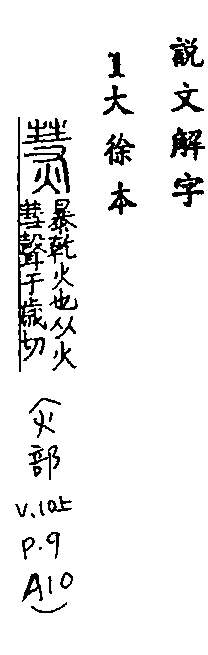 説文解字
1大徐本
㷉 暴乾火也从火
彗聲于歲切
(火部
v.10上
p.9
A10)